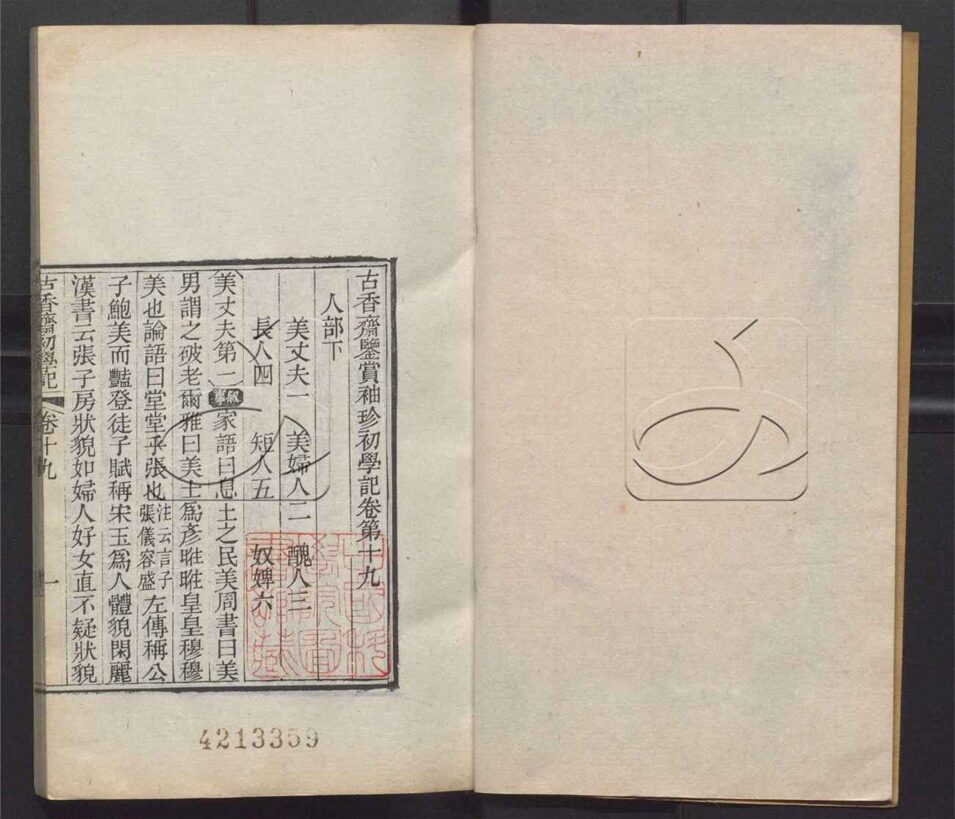 古香齋鑒賞袖珍初學記卷第十九
人部下
美丈夫一 美婦人二 醜人三
長人四 短人五 奴婢六
美丈夫第一 敘事 家語曰息土之民美周書曰美
男謂之破老爾雅曰美士為彥暀暀皇皇穆穆
美也論語曰堂堂乎張也注云言子張儀容盛左傳稱公
子鮑美而豔登徒子賦稱宋玉為人體貌閑麗
漢書云張子房狀貌如婦人好女直不疑狀貌
古香齋初學記 卷十九 一
4213359